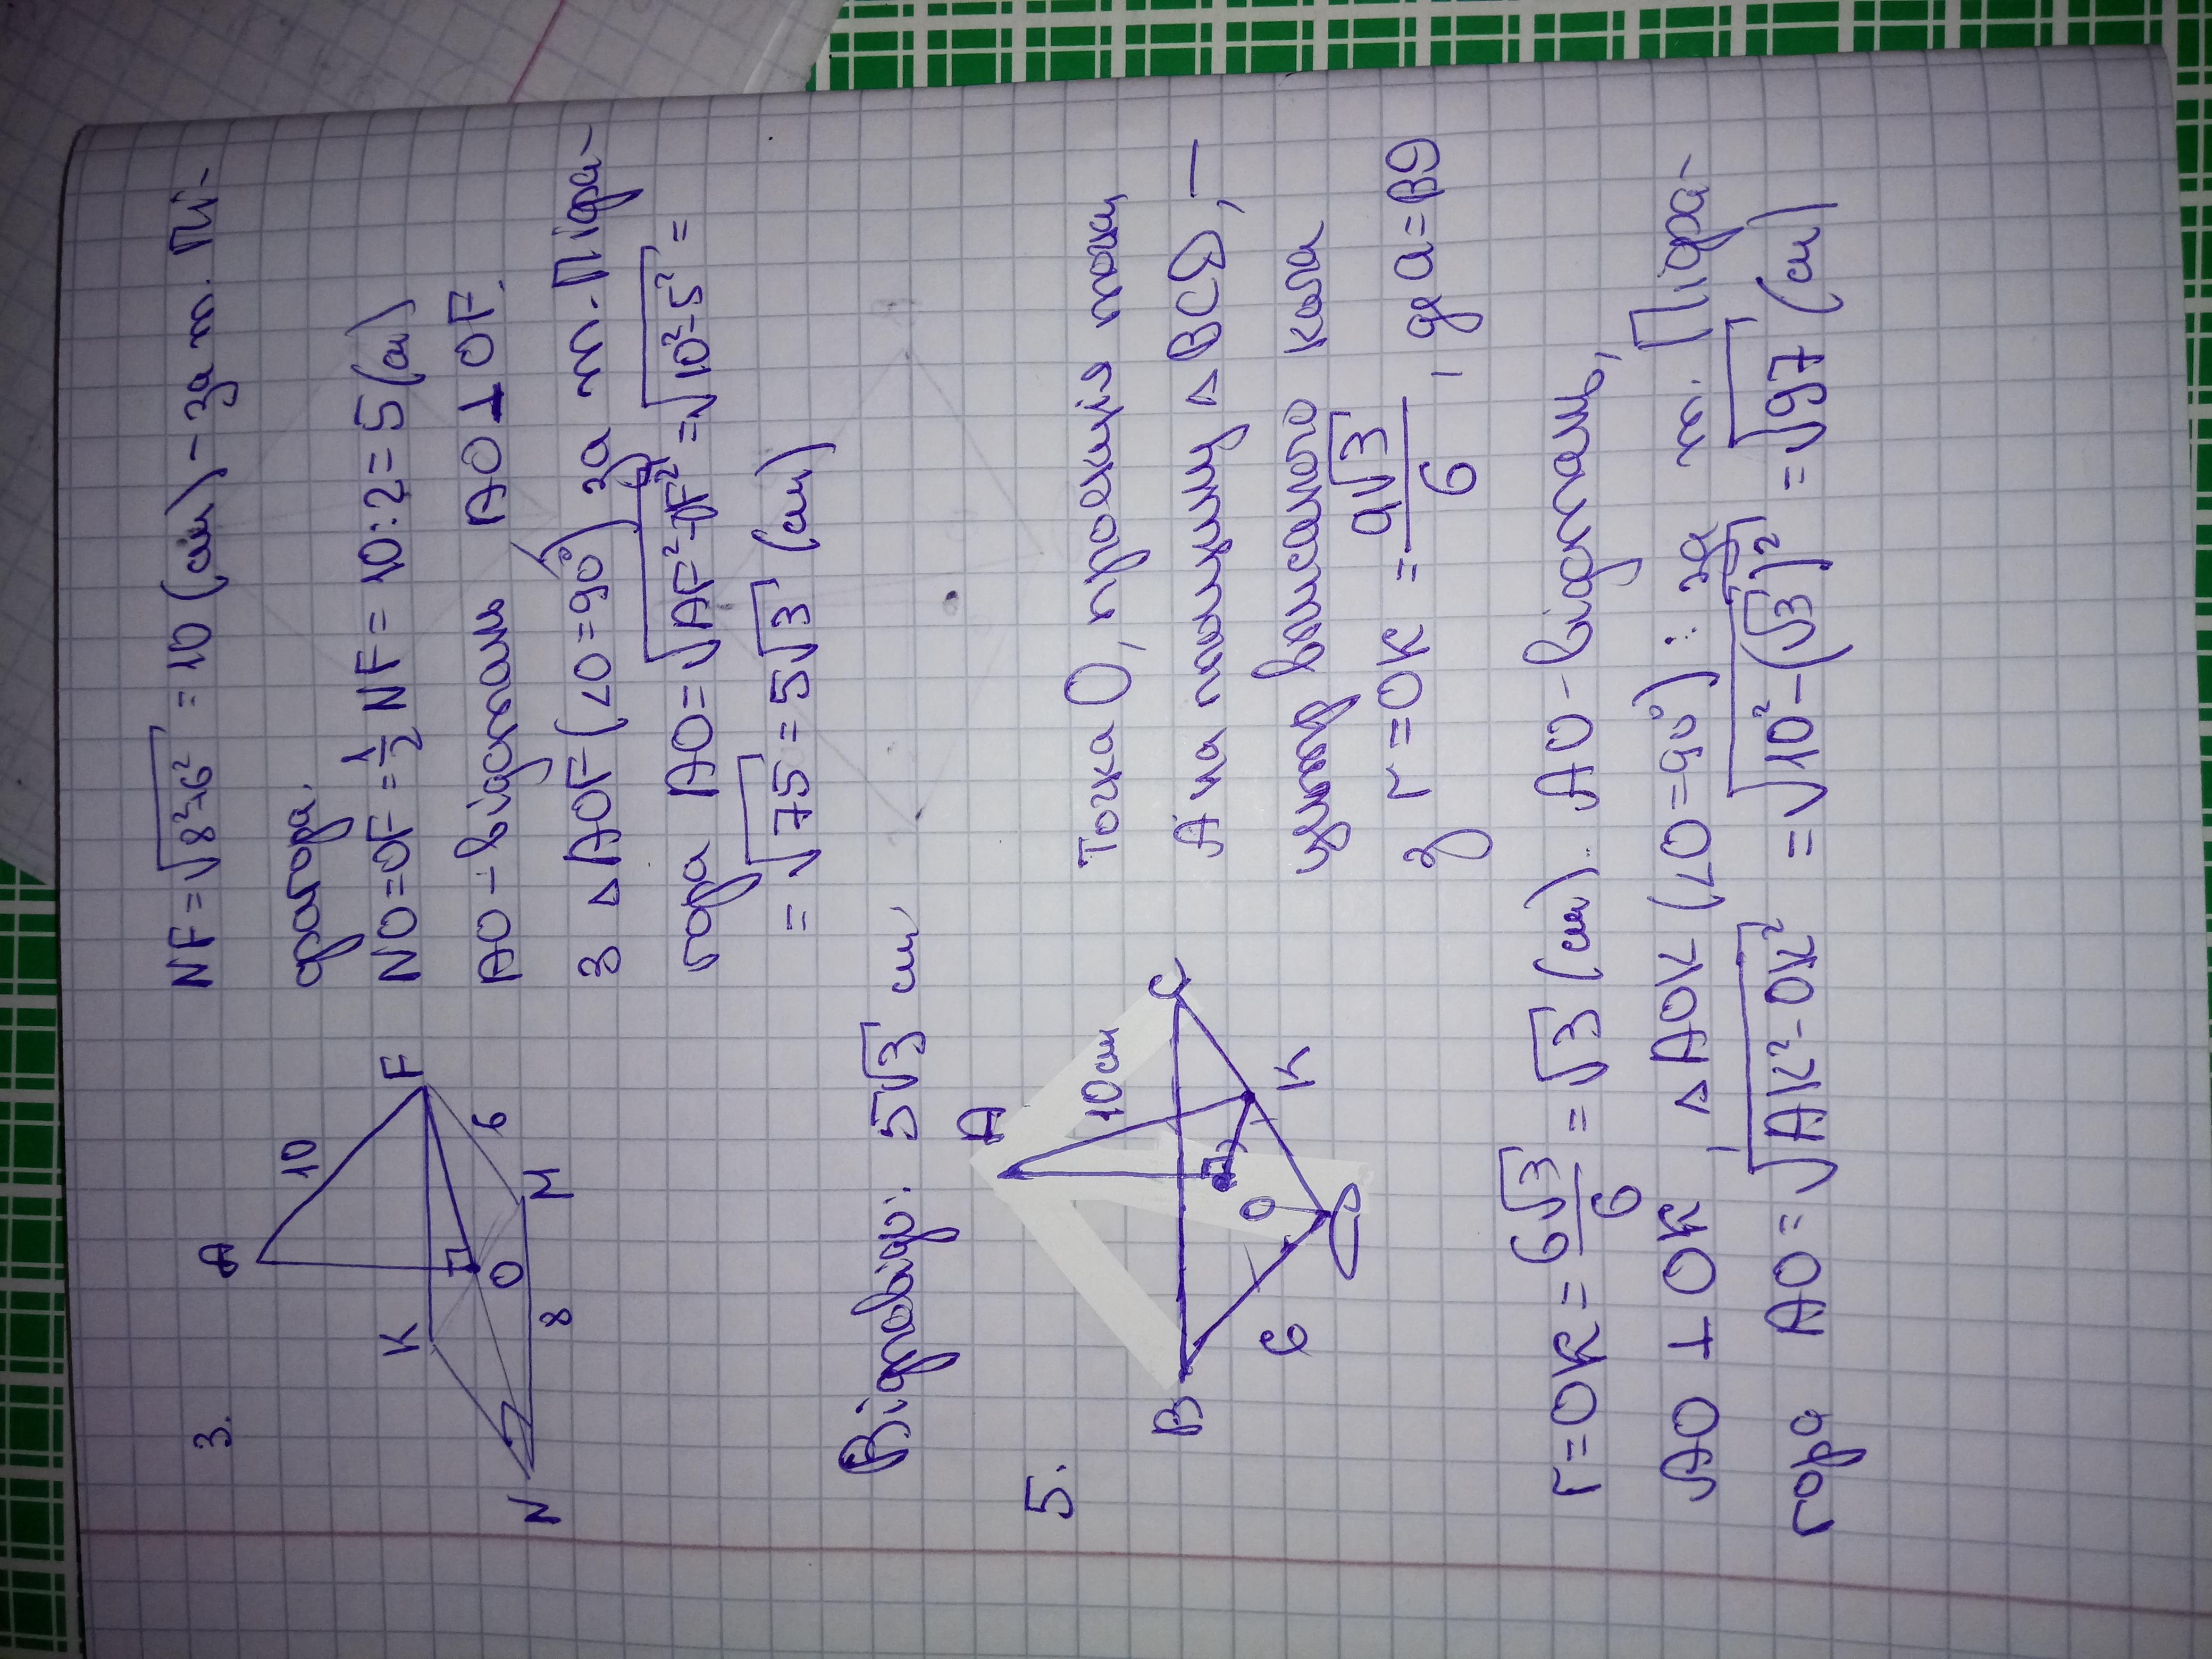 3.
A
10
K
F
O
6
N
8
M
NF = √8²+6² = 10 (см) – за т. Пі-
фагора.
NO = OF = 1/2 NF = 10:2 = 5 (см)
AO – відстань AO ⊥ OF.
З △ AOF (∠O = 90°) за т. Піфа-
гора AO = √AF² - OF² = √10² - 5² =
= √75 = 5√3 (см)
Відповідь: 5√3 см
5.
A
10 см
B
C
O
K
6
D
Точка O, проекція точки
A на площину △ BCD, –
центр вписаного кола
з r = OK = a√3/6, де a = BD
r = OK = 6√3/6 = √3 (см). AO - відстань,
AO ⊥ OK, △ AOK (∠O = 90°): за т. Піфа-
гора AO = √AK² - OK² = √10² - (√3)² = √97 (см)